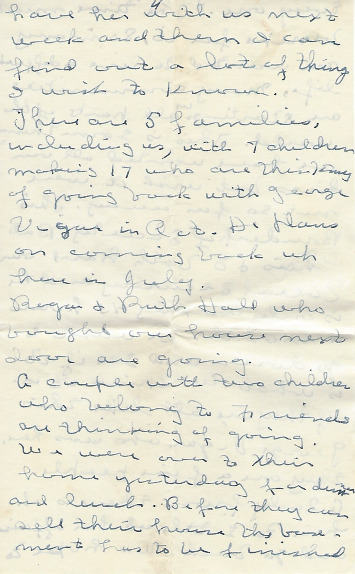 have her with us next
week and then I can
find out a lot of things
I wish to know.
There are 5 families,
including us, with 7 children
making 17 who are thinking
of going back with George
in Oct. He plans
on coming back up
here in July.
Roger & Ruth Hall who
bought our house next
door are going.
A couple with two children
who belong to Friends
are thinking of going.
We were over to their
home yesterday for dinner
and lunch. Before they can
sell their house the base-
ment has to be finished